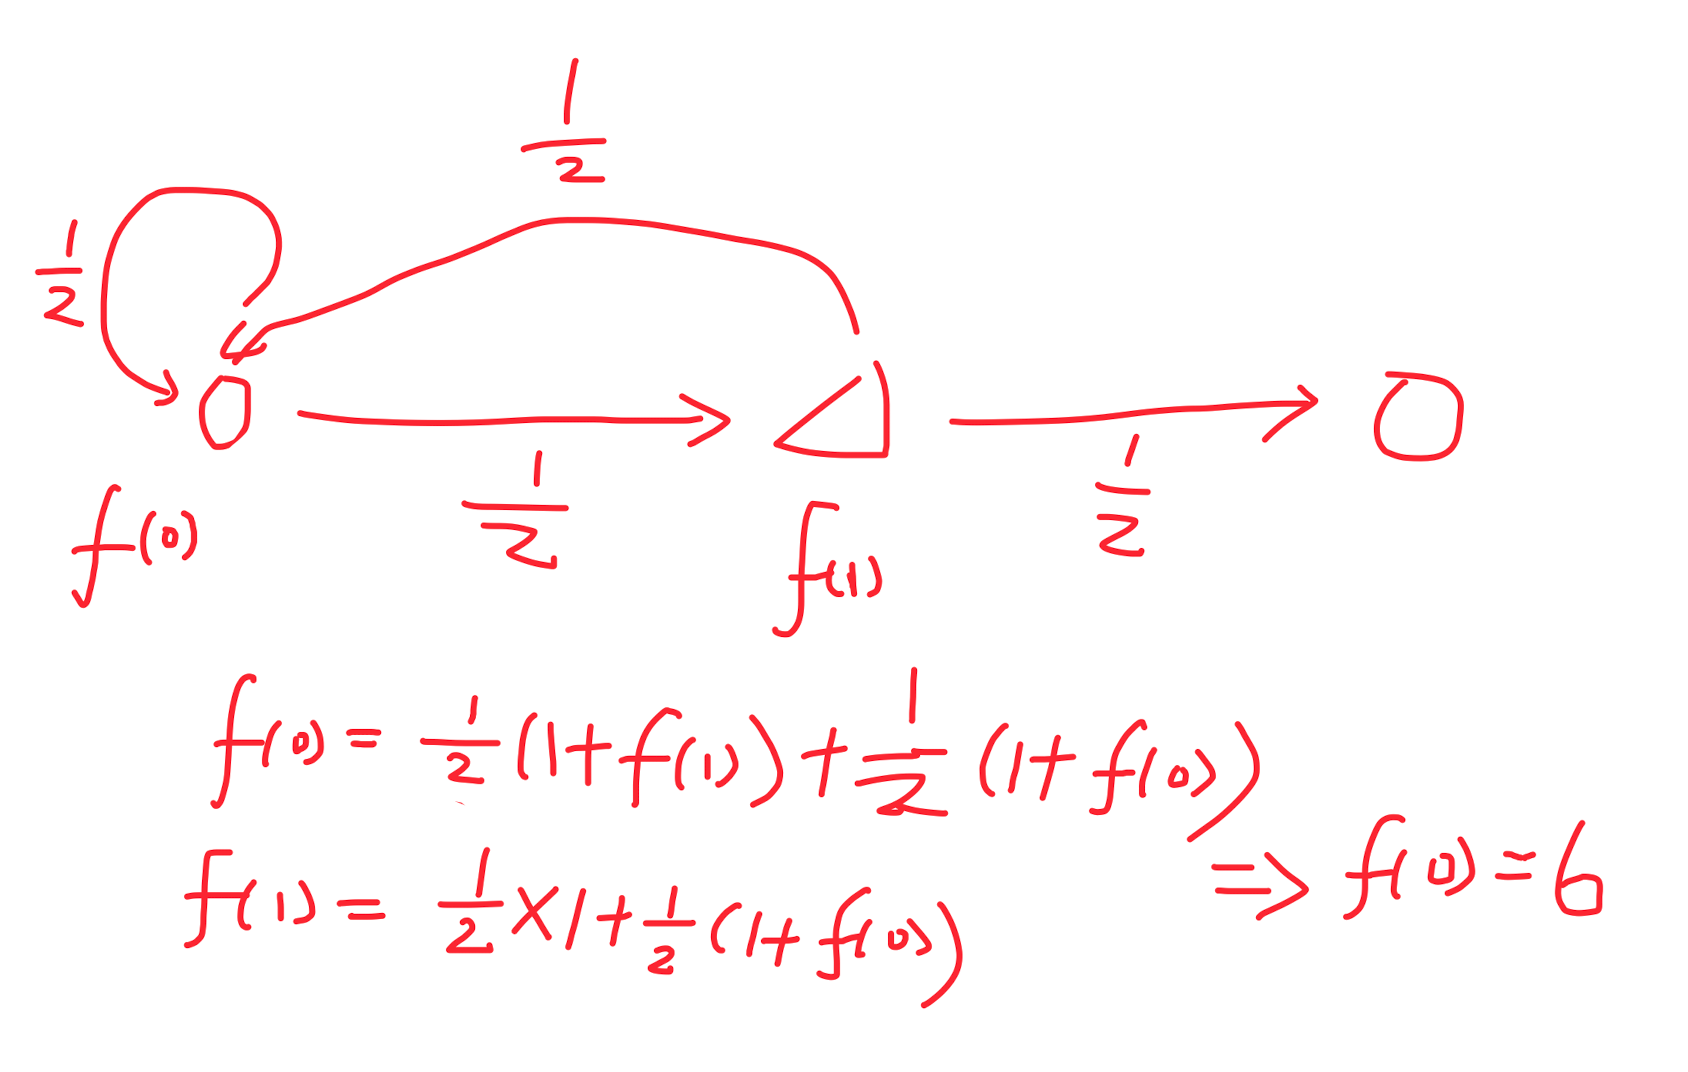 1/2
1/2
1/2
1/2
f(0)
f(1)
f(0) = 1/2 (1+f(1)) + 1/2 (1+f(0))
f(1) = 1/2 × 1 + 1/2 (1+f(0))
⇒ f(0) = 6